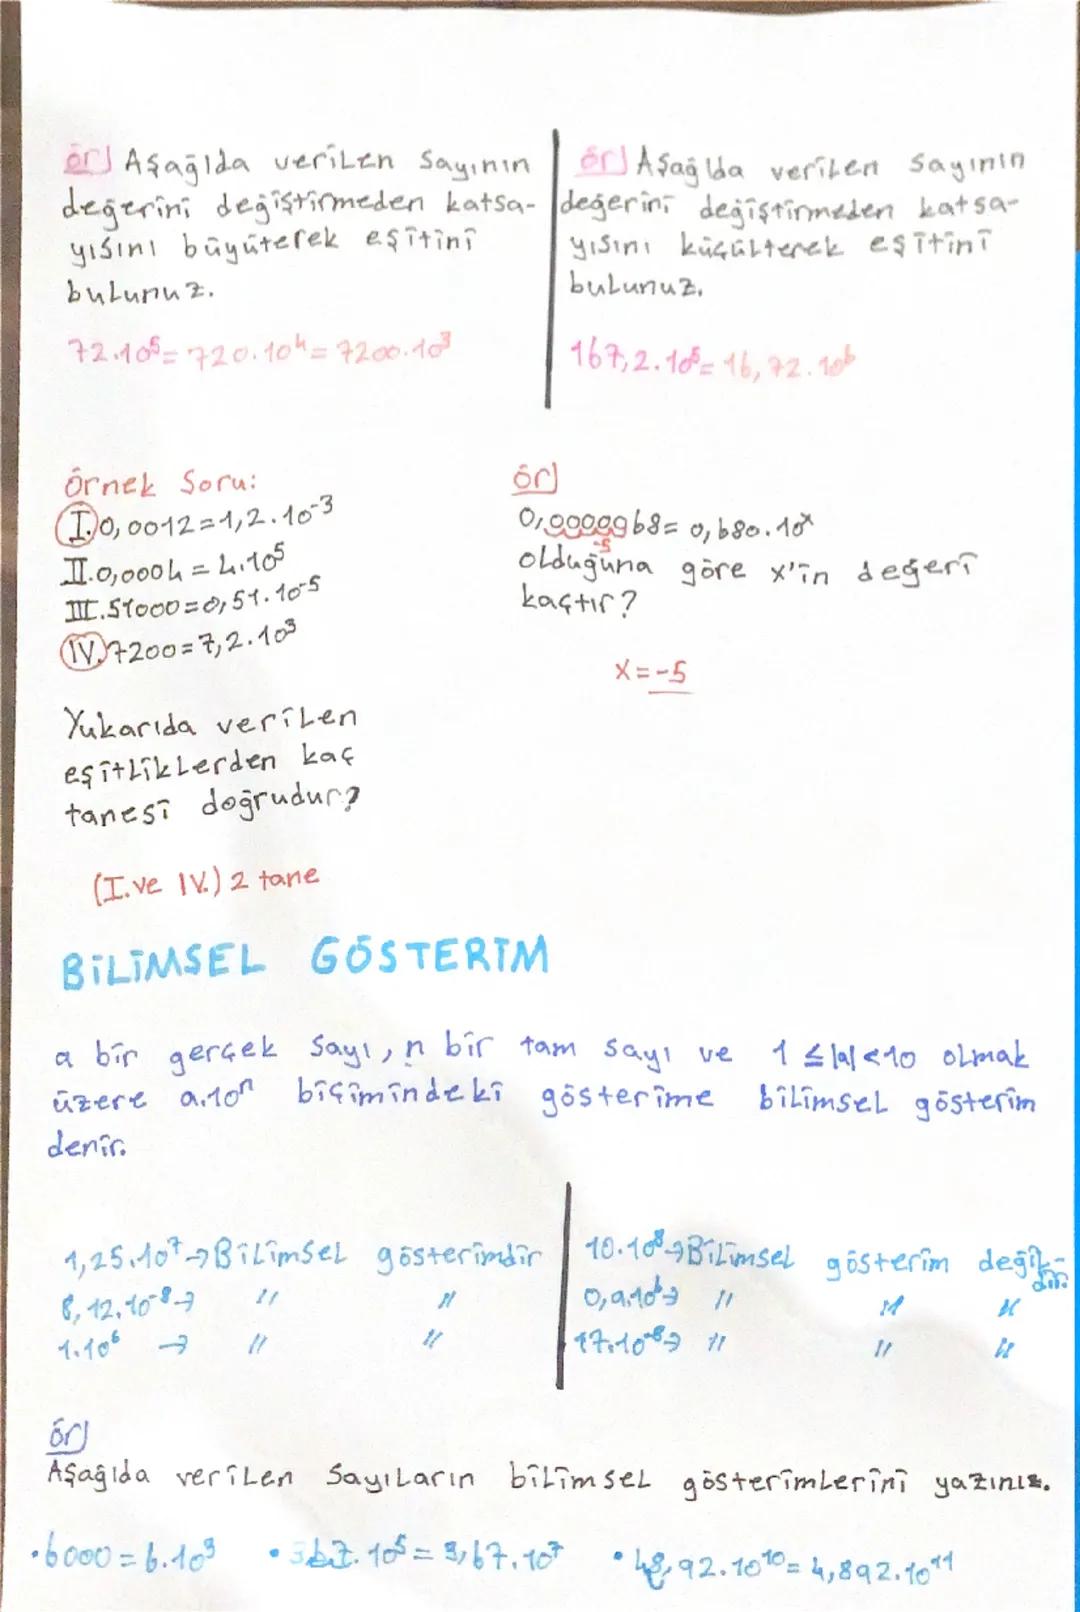 ör] Aşağıda verilen sayının
değerini değiştirmeden katsa-
yısını büyüterek eşitini
bulunuz.
72.10⁵= 720.10⁴= 7200.10³
ör] Aşağıda verilen sayının
değerini değiştirmeden katsa-
yısını küçülterek eşitini
bulunuz.
167,2.10⁵= 16,72.10⁶
Örnek Soru:
I.0,0012=1,2.10⁻³
II.0,0004=4.10⁵
III.51000=0,51.10⁻⁵
IV.7200=7,2.10³
Yukarıda verilen
eşitliklerden kaç
tanesi doğrudur?
(I.ve IV.) 2 tane
ör]
0,0000068= 0,680.10ˣ
-5
olduğuna göre x'in değeri
kaçtır?
x=-5
BİLİMSEL GÖSTERİM
a bir gerçek sayı, n bir tam sayı ve 1≤|a|<10 olmak
üzere a.10ⁿ biçimindeki gösterime bilimsel gösterim
denir.
1,25.10⁷→Bilimsel gösterimdir
8,12.10⁻⁸→ " "
1.10⁶ → " "
10.10⁸→Bilimsel gösterim değil-
dir.
0,9.10⁶→ " " "
17.10⁻⁸→ " " "
ör]
Aşağıda verilen sayıların bilimsel gösterimlerini yazınız.
•6000=6.10³ •367.10⁵=3,67.10⁷ •48,92.10¹⁰=4,892.10¹¹